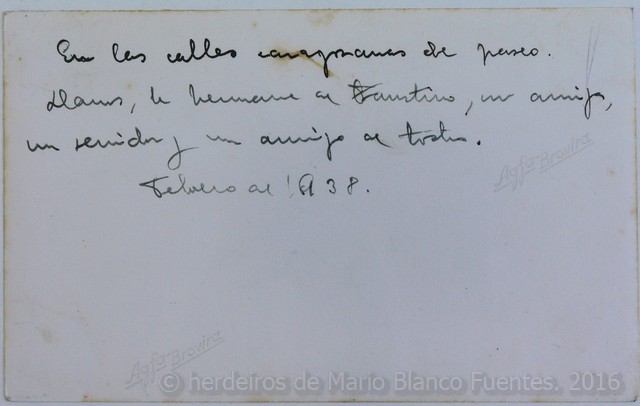 En las calles zaragozanas de paseo.
la hermana de Faustino, un amigo,
un servidor y un amigo de todos.
Febrero de 1938.
Agfa Brovira
Agfa Brovira
© herdeiros de Mario Blanco Fuentes. 2016